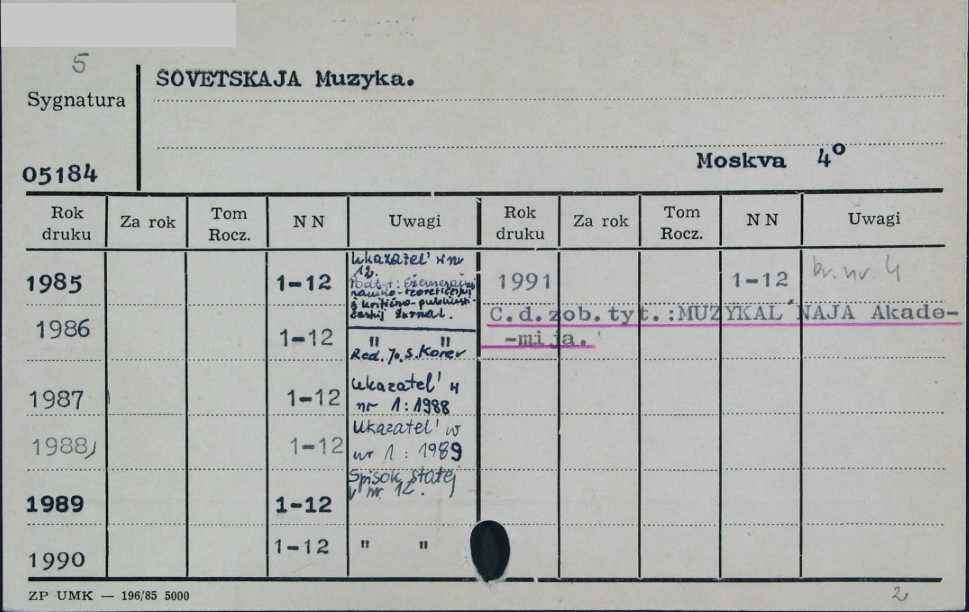 5
SOVETSKAJA Muzyka.
Sygnatura
05184
Moskva 4°
Rok druku Za rok Tom Rocz. NN Uwagi Rok druku Za rok Tom Rocz. NN Uwagi
1985 1-12 Ukazatel' w nr 12. 1991 1-12 br. nr. 4
Podt.: Eženesjačnyj
naučno-teoretičeskij
i kritično-publicist-
českij žurnal.
C.d.zob.tyt.:MUZYKAL'NAJA Akade-
-mija.
1986 1-12 " "
Red. Ju. S. Korev
1987 1-12 Ukazatel' w
nr 1: 1988
1988 1-12 Ukazatel' w
nr 1: 1989
Spisok statej
v nr 12.
1989 1-12
1990 1-12 " "
ZP UMK — 196/85 5000
2